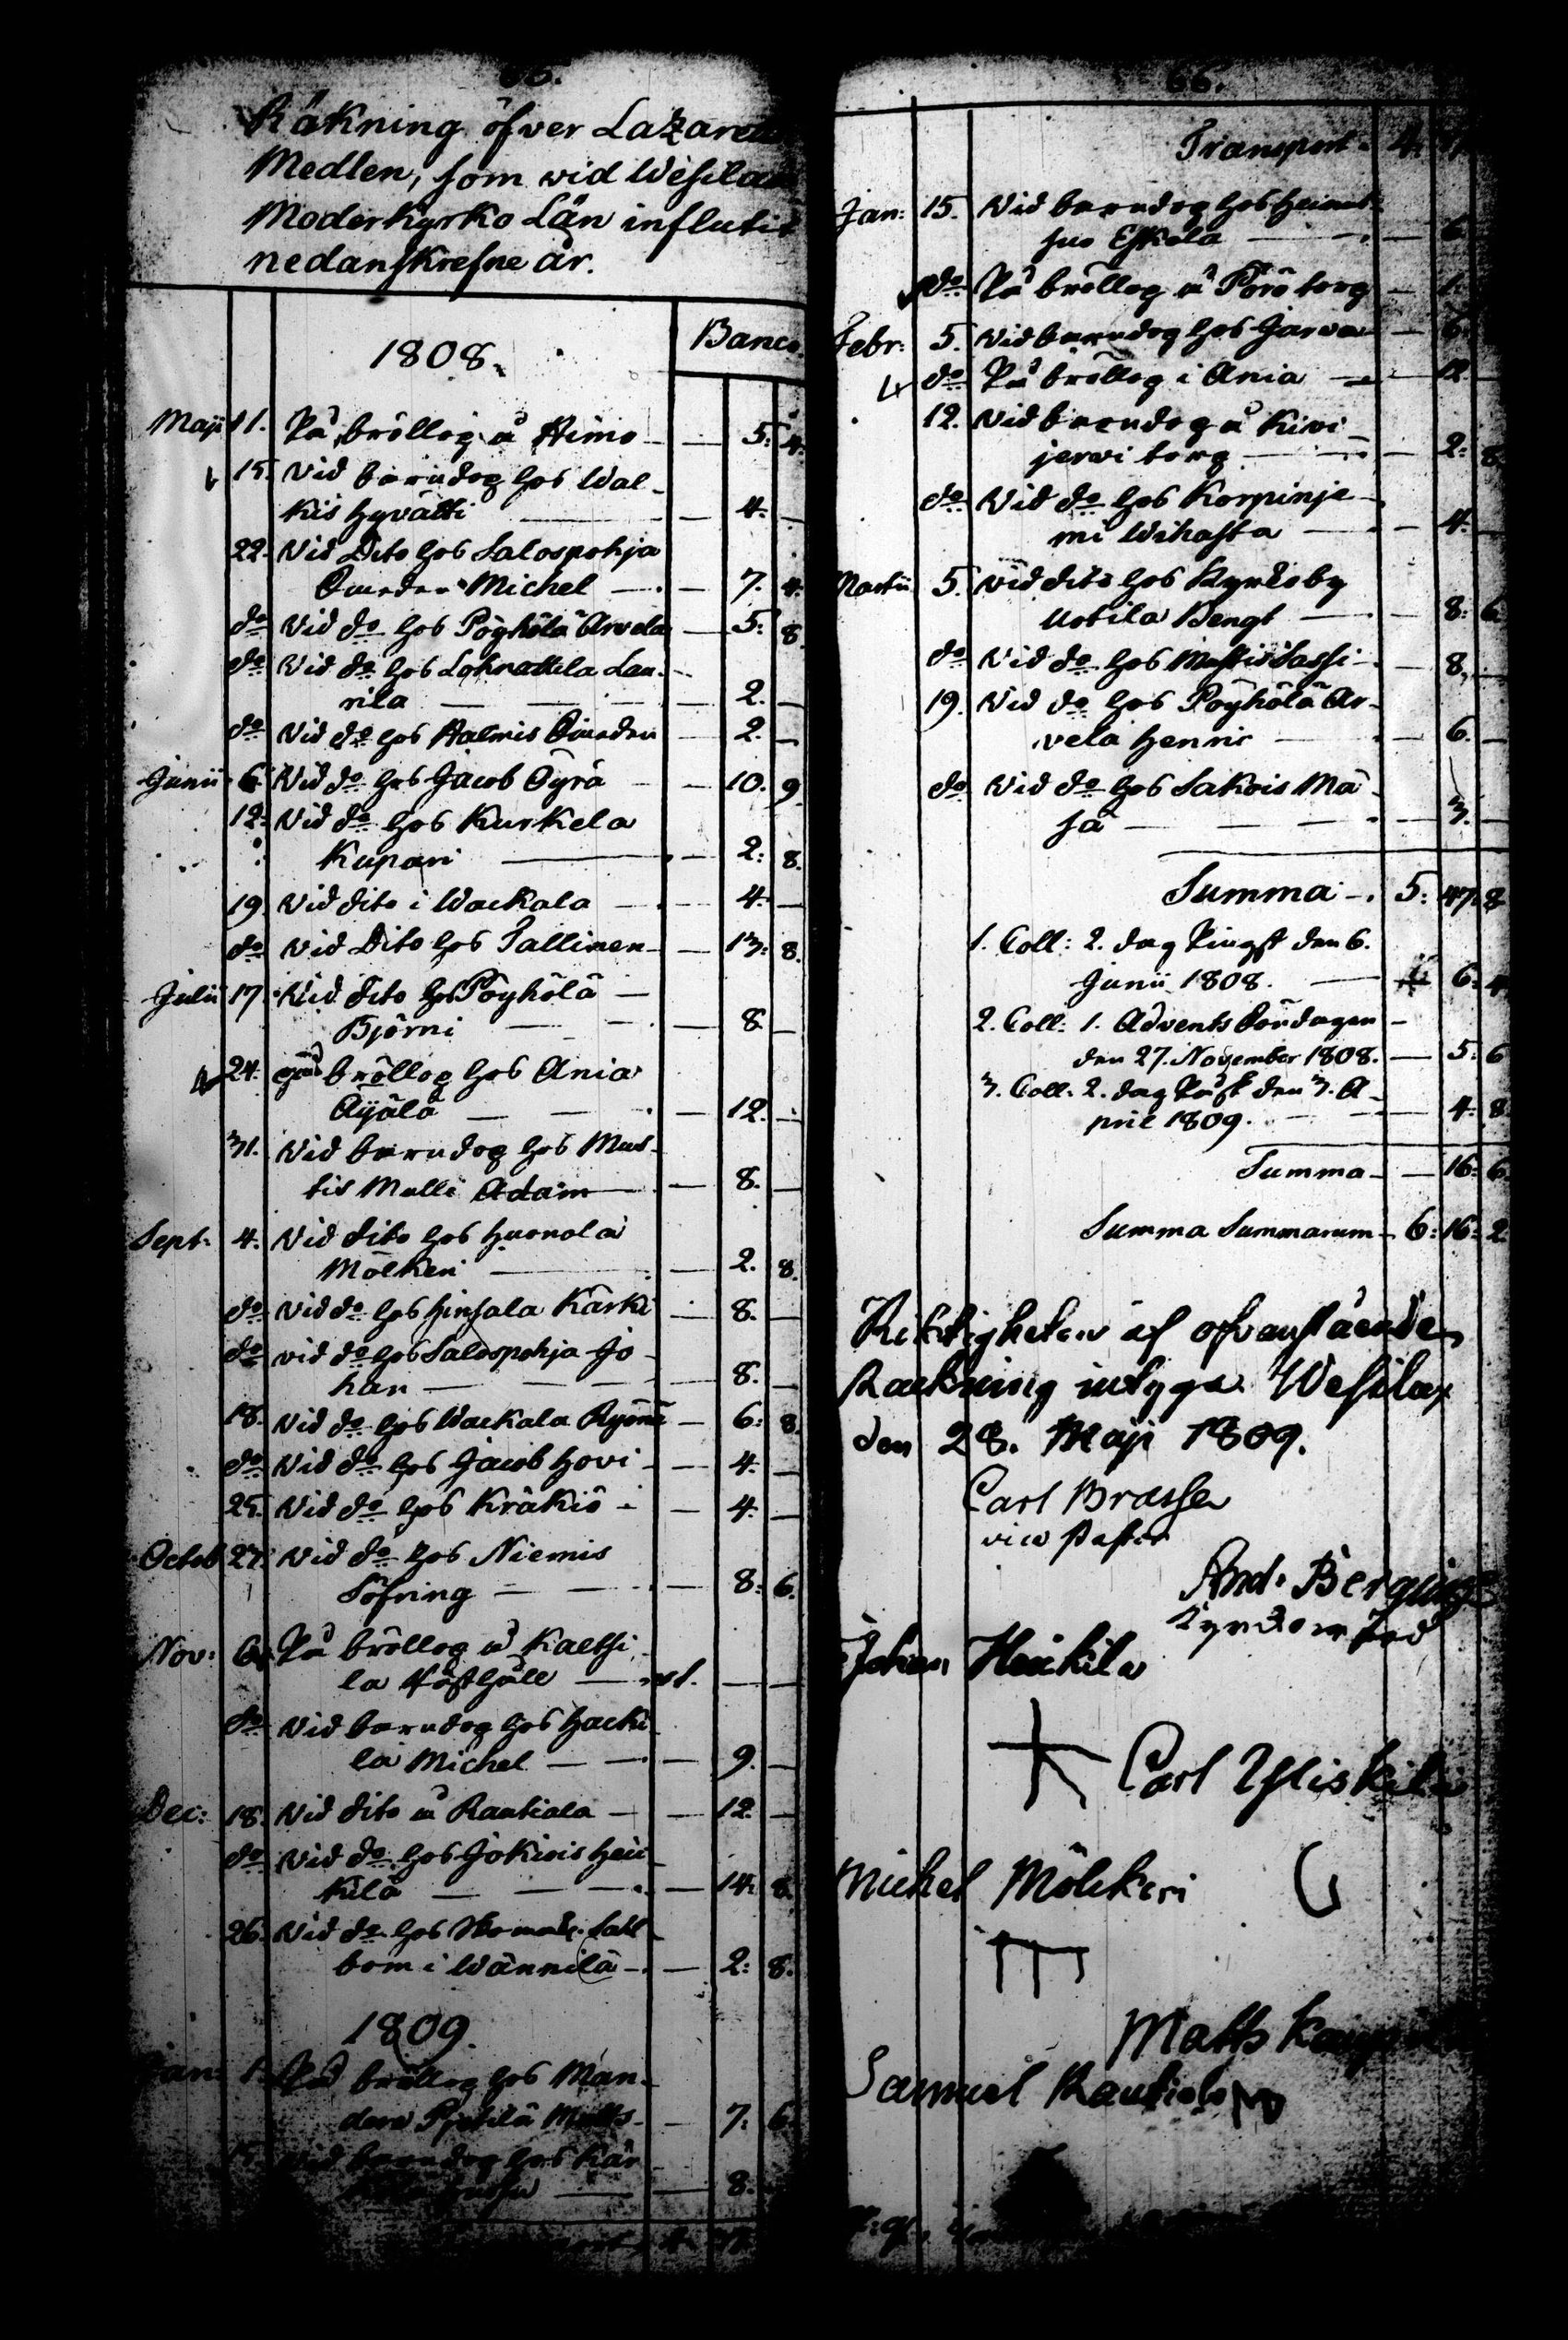 Räkning öfver Lazarets
Medlen, som vid Wesila
Moderkyrko Län influtit
nedanskrefne år.
1808. Banco.
Maji 1. På bröllog å Aimo — 5: 4.
15. Vid barndog hos Wal-
kis Hyvätti — 4. —
22. Vid Dito hos Salospohja
Michel — 7. 4.
do Vid do hos Pöyhölä Arvela — 5: 8.
do Vid do hos Lau-
rila — 2. —
do Vid do hos Halmis — 2. —
Junii 6. Vid do hos Jacob Öyrä — 10. 9.
12. Vid do hos Kurkela
Kupari — 2: 8.
19. Vid dito i Wackala — 4. —
do Vid Dito hos Tallinen — 13: 8.
Julii 17. Vid dito hos Pöyhölä —
Björni — 8. —
24. bröllog hos Ania
Äijälä — 12. —
31. Vid barndog hos Mus-
tis Malli Adam — 8. —
Sept: 4. Vid dito hos Huonola
Mölkeri — 2. 8.
do Vid do hos Hinsala Kärki — 8. —
do vid do hos Salospohja Jo-
han — 8. —
18. Vid do hos Wackala Ryönä — 6: 8.
do Vid do hos Jacob Hovi — 4. —
25. Vid do hos Kräkiö — 4. —
Octob 27. Vid do hos Niemis
Söfring — 8: 6.
Nov: 6. På bröllog å Kaltsi-
la — 1. — —
do Vid barndog hos Hacki-
la Michel — 9. —
Dec: 18. Vid dito å Rautiala — 12. —
do Vid do hos Jokiois Hei-
kilä — 14: 8.
26. Vid do hos Sahl-
bom i Wännilä — 2: 8.
1809.
Jan: 1. På bröllog hos Man-
ders Matts — 7: 6.
15. Vid barndog hos Kär-
— 8.
66.
Transport — 4:
Jan: 15. Vid barndog hos Heinnt-
suo Eskola — 6.
do På bröllog å Pörö torg — 1:
Febr: 5. Vid barndog hos Jarva — 6.
do På bröllog i Ania — 12. —
12. Vid barndog å Kiwi-
jerwi torg — 2: 8.
do Vid do hos Korpinje-
mi Wihasta — 4. —
Martii 5. vid dito hos Kyrkoby
Uotila Bengt — 8: 6.
do Vid do hos Mustis Sassi — 8. —
19. Vid do hos Pöyhölä Ar-
vela Henric — 6. —
do Vid do hos Sakois Ma-
sa — 3. —
Summa — 5: 47: 8.
1. Coll: 2. dag Pingst den 6.
Junii 1808. — 6: 4.
2. Coll: 1. Advents Söndagen —
den 27. November 1808. — 5: 6.
3. Coll: 2. dag Påsk den 3. A-
pril 1809. — 4: 8.
Summa — — 16: 6.
Summa Summarum — 6: 16: 2.
Riktigheten af ofvanstående
Räkning intyga Wesilax
den 28. Maji 1809.
Carl Brasse
vice Pastor
And. Bergving
Johan Heikilä
Carl Yliskilä
Michel Mölckeri
Matts
Samuel Rautiala